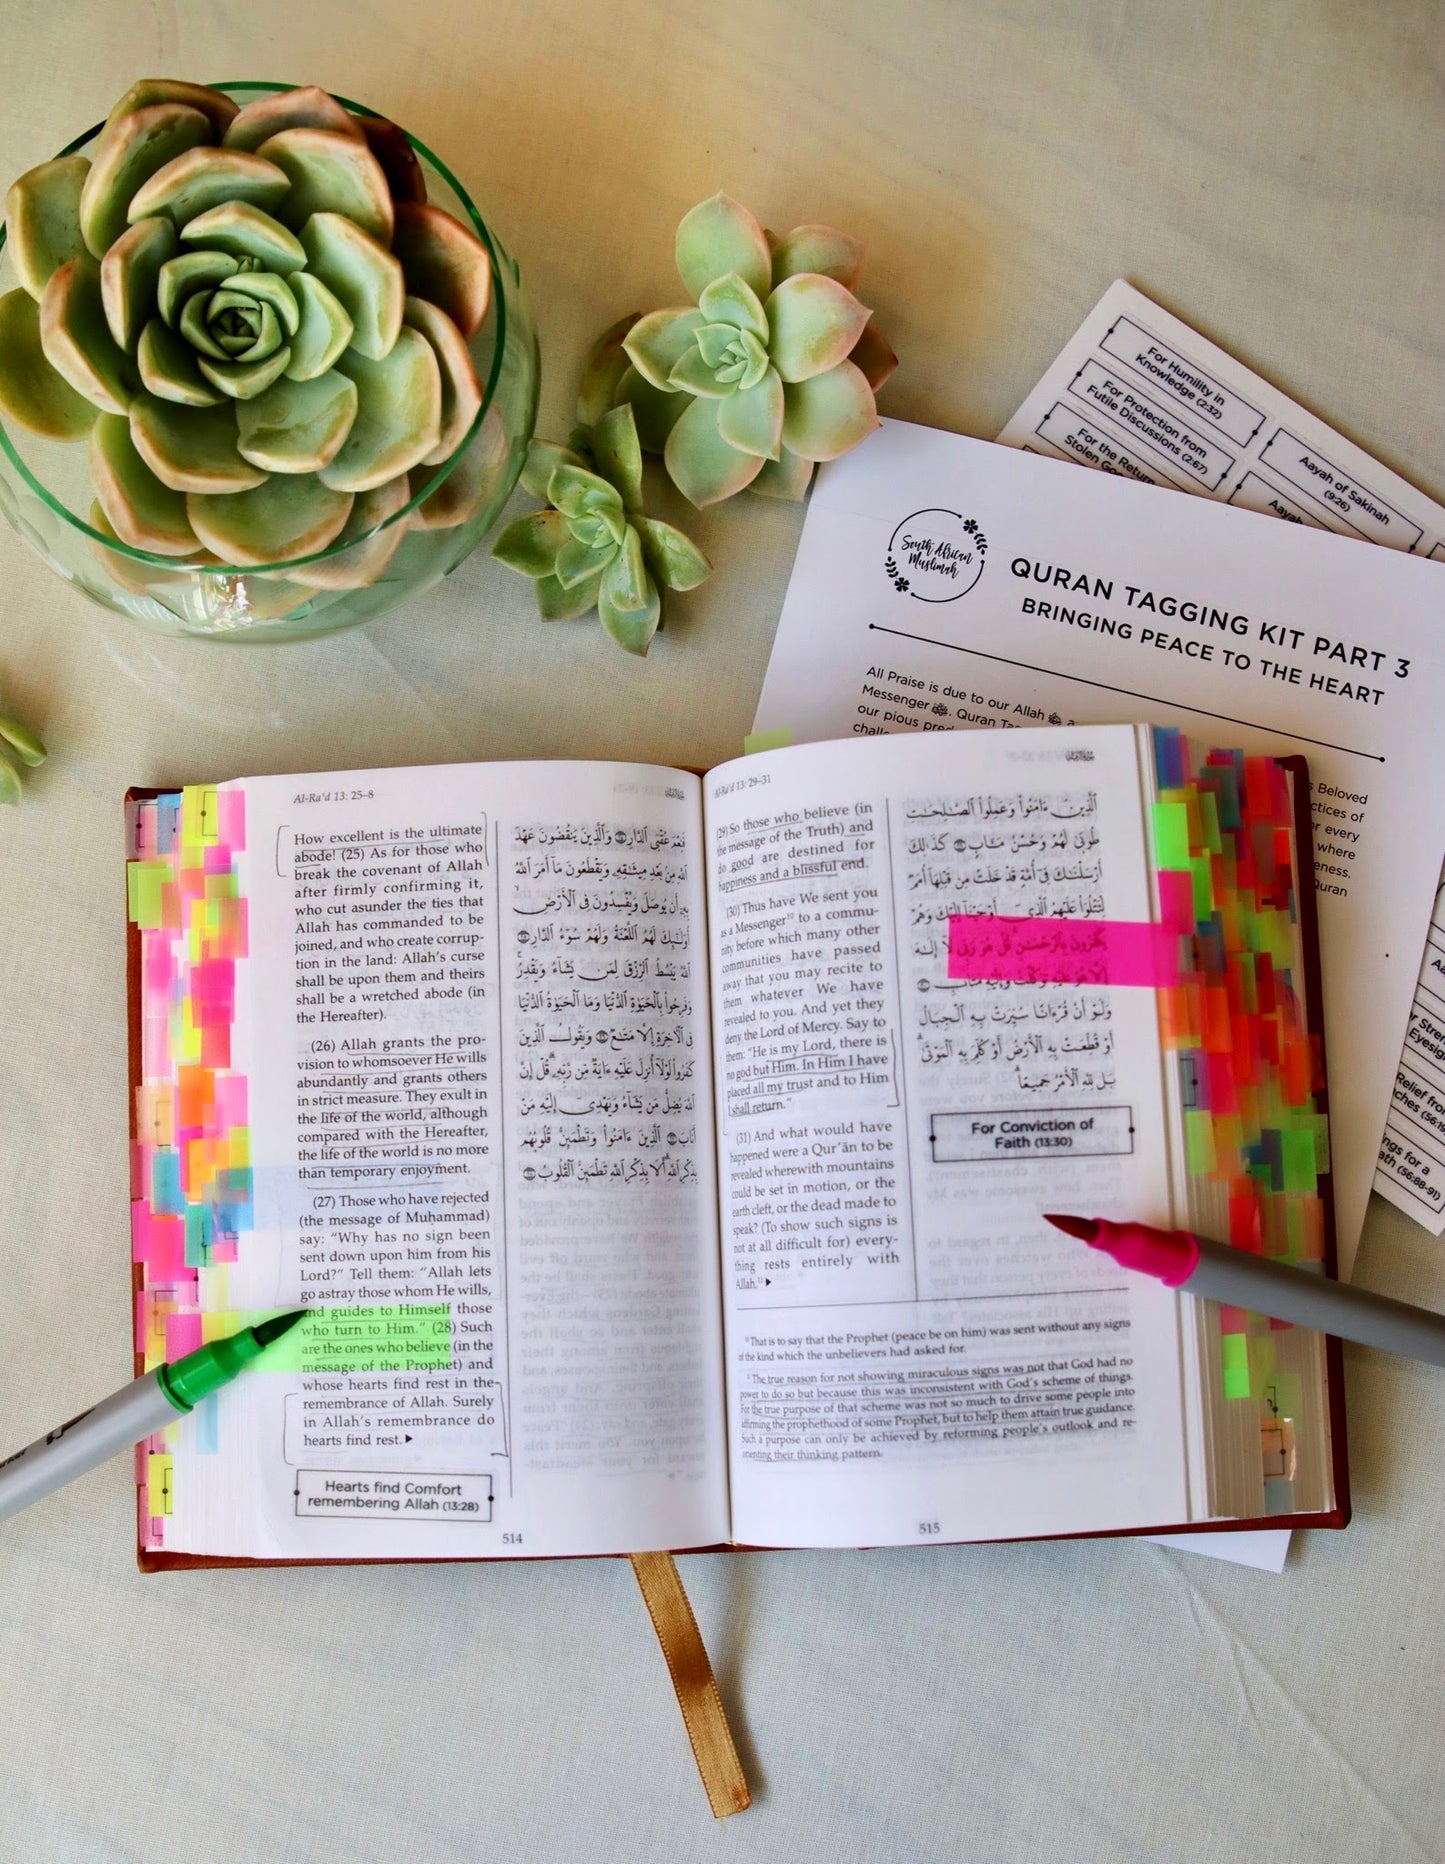 For Humility in
Knowledge (2:32)
For Protection from
Futile Discussions (2:67)
For the Return
Stolen
Aayah of Sakinah
(9:26)
Aayah
South African
Muslimah
QURAN TAGGING KIT PART 3
BRINGING PEACE TO THE HEART
All Praise is due to our Allah
Messenger ﷺ. Quran
our pious
Beloved
of
every
where
Quran
Relief
(56:88-91)
Al-Ra'd 13: 25–8
How excellent is the ultimate
abode! (25) As for those who
break the covenant of Allah
after firmly confirming it,
who cut asunder the ties that
Allah has commanded to be
joined, and who create corrup-
tion in the land: Allah's curse
shall be upon them and theirs
shall be a wretched abode (in
the Hereafter).
(26) Allah grants the pro-
vision to whomsoever He wills
abundantly and grants others
in strict measure. They exult in
the life of the world, although
compared with the Hereafter,
the life of the world is no more
than temporary enjoyment.
(27) Those who have rejected
(the message of Muḥammad)
say: "Why has no sign been
sent down upon him from his
Lord?" Tell them: "Allah lets
go astray those whom He wills,
and guides to Himself those
who turn to Him." (28) Such
are the ones who believe (in the
message of the Prophet) and
whose hearts find rest in the
remembrance of Allah. Surely
in Allah's remembrance do
hearts find rest.▶
Hearts find Comfort
remembering Allah (13:28)
فَنِعْمَ عُقْبَى ٱلدَّارِ وَٱلَّذِينَ يَنقُضُونَ عَهْدَ
ٱللَّهِ مِنۢ بَعْدِ مِيثَٰقِهِۦ وَيَقْطَعُونَ مَآ أَمَرَ ٱللَّهُ
بِهِۦٓ أَن يُوصَلَ وَيُفْسِدُونَ فِى ٱلْأَرْضِ
أُو۟لَٰٓئِكَ لَهُمُ ٱللَّعْنَةُ وَلَهُمْ سُوٓءُ ٱلدَّارِ
ٱللَّهُ يَبْسُطُ ٱلرِّزْقَ لِمَن يَشَآءُ وَيَقْدِرُ
وَفَرِحُوا۟ بِٱلْحَيَوٰةِ ٱلدُّنْيَا وَمَا ٱلْحَيَوٰةُ ٱلدُّنْيَا
فِى ٱلْءَاخِرَةِ إِلَّا مَتَٰعٌ وَيَقُولُ ٱلَّذِينَ
كَفَرُوا۟ لَوْلَآ أُنزِلَ عَلَيْهِ ءَايَةٌ مِّن رَّبِّهِۦ قُلْ إِنَّ
ٱللَّهَ يُضِلُّ مَن يَشَآءُ وَيَهْدِىٓ إِلَيْهِ مَنْ
أَنَابَ ٱلَّذِينَ ءَامَنُوا۟ وَتَطْمَئِنُّ قُلُوبُهُم
بِذِكْرِ ٱللَّهِ أَلَا بِذِكْرِ ٱللَّهِ تَطْمَئِنُّ ٱلْقُلُوبُ
514
Al-Ra'd 13: 29–31
(29) So those who believe (in
the message of the Truth) and
do good are destined for
happiness and a blissful end.
(30) Thus have We sent you
as a Messenger¹⁰ to a commu-
nity before which many other
communities have passed
away that you may recite to
them whatever We have
revealed to you. And yet they
deny the Lord of Mercy. Say to
them: "He is my Lord, there is
no god but Him. In Him I have
placed all my trust and to Him
I shall return."
(31) And what would have
happened were a Qur'ān to be
revealed wherewith mountains
could be set in motion, or the
earth cleft, or the dead made to
speak? (To show such signs is
not at all difficult for) every-
thing rests entirely with
Allah.¹¹▶
ٱلَّذِينَ ءَامَنُوا۟ وَعَمِلُوا۟ ٱلصَّٰلِحَٰتِ
طُوبَىٰ لَهُمْ وَحُسْنُ مَـَٔابٍ كَذَٰلِكَ
أَرْسَلْنَٰكَ فِىٓ أُمَّةٍ قَدْ خَلَتْ مِن قَبْلِهَآ أُمَمٌ
لِّتَتْلُوَا۟ عَلَيْهِمُ ٱلَّذِىٓ أَوْحَيْنَآ إِلَيْكَ وَهُمْ
يَكْفُرُونَ بِٱلرَّحْمَٰنِ قُلْ هُوَ رَبِّى لَآ إِلَٰهَ
إِلَّا هُوَ عَلَيْهِ تَوَكَّلْتُ وَإِلَيْهِ مَتَابِ
وَلَوْ أَنَّ قُرْءَانًا سُيِّرَتْ بِهِ ٱلْجِبَالُ
أَوْ قُطِّعَتْ بِهِ ٱلْأَرْضُ أَوْ كُلِّمَ بِهِ ٱلْمَوْتَىٰ
بَل لِّلَّهِ ٱلْأَمْرُ جَمِيعًا
For Conviction of
Faith (13:30)
That is to say that the Prophet (peace be on him) was sent without any signs
of the kind which the unbelievers had asked for.
The true reason for not showing miraculous signs was not that God had no
power to do so but because this was inconsistent with God's scheme of things.
For the true purpose of that scheme was not so much to drive some people into
affirming the prophethood of some Prophet, but to help them attain true guidance.
Such a purpose can only be achieved by reforming people's outlook and re-
orienting their thinking pattern.
515